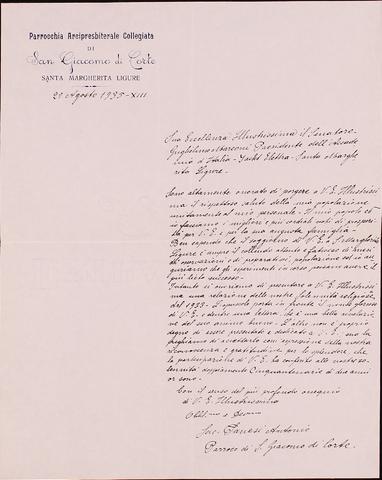 Parrocchia Arcipresbiterale Collegiata
DI
San Giacomo di Corte
SANTA MARGHERITA LIGURE
21 Agosto 1935-XIII
Sua Eccellenza Illustrissima il Senatore
Guglielmo Marconi Presidente dell'Accade
mia d'Italia - Yacht Elettra - Santa Marghe
rita Ligure.
Sono altamente onorato di porgere a V. E. Illustrissi
ma il rispettoso saluto della mia popolazione
unitamente al mio personale. Il mio popolo ed
io facciamo i migliori e più cordiali voti di prosperi
tà per V. E. e per la sua augusta famiglia.
Ben sapendo che il soggiorno di V. E. a S. Margherita
Ligure è sempre
di osservazioni e di preparativi, popolazione ed io au
guriamo che gli esperimenti in corso possano avere il
più lieto successo.
Intanto ci onoriamo di presentare a V. E. Illustrissi
ma una relazione delle nostre solennità religiose
del 1933. L'opuscolo porta in fronte il nome glorioso
di V. E. e dentro una lettera, che è una bella rivelazio
ne del suo animo buono. L'altro non è proprio
degno di essere presentato e dedicato a V. E. ma la
preghiamo di accettarlo come espressione della nostra
riconoscenza e gratitudine per lo splendore, che
la partecipazione di V. E. ha conferito alle nostre so
lennità Cinquantenarie di due anni
or sono.
Con il senso del più profondo ossequio
di V. E. Illustrissima
Sac. Antonio
Parroco di S. Giacomo di Corte.